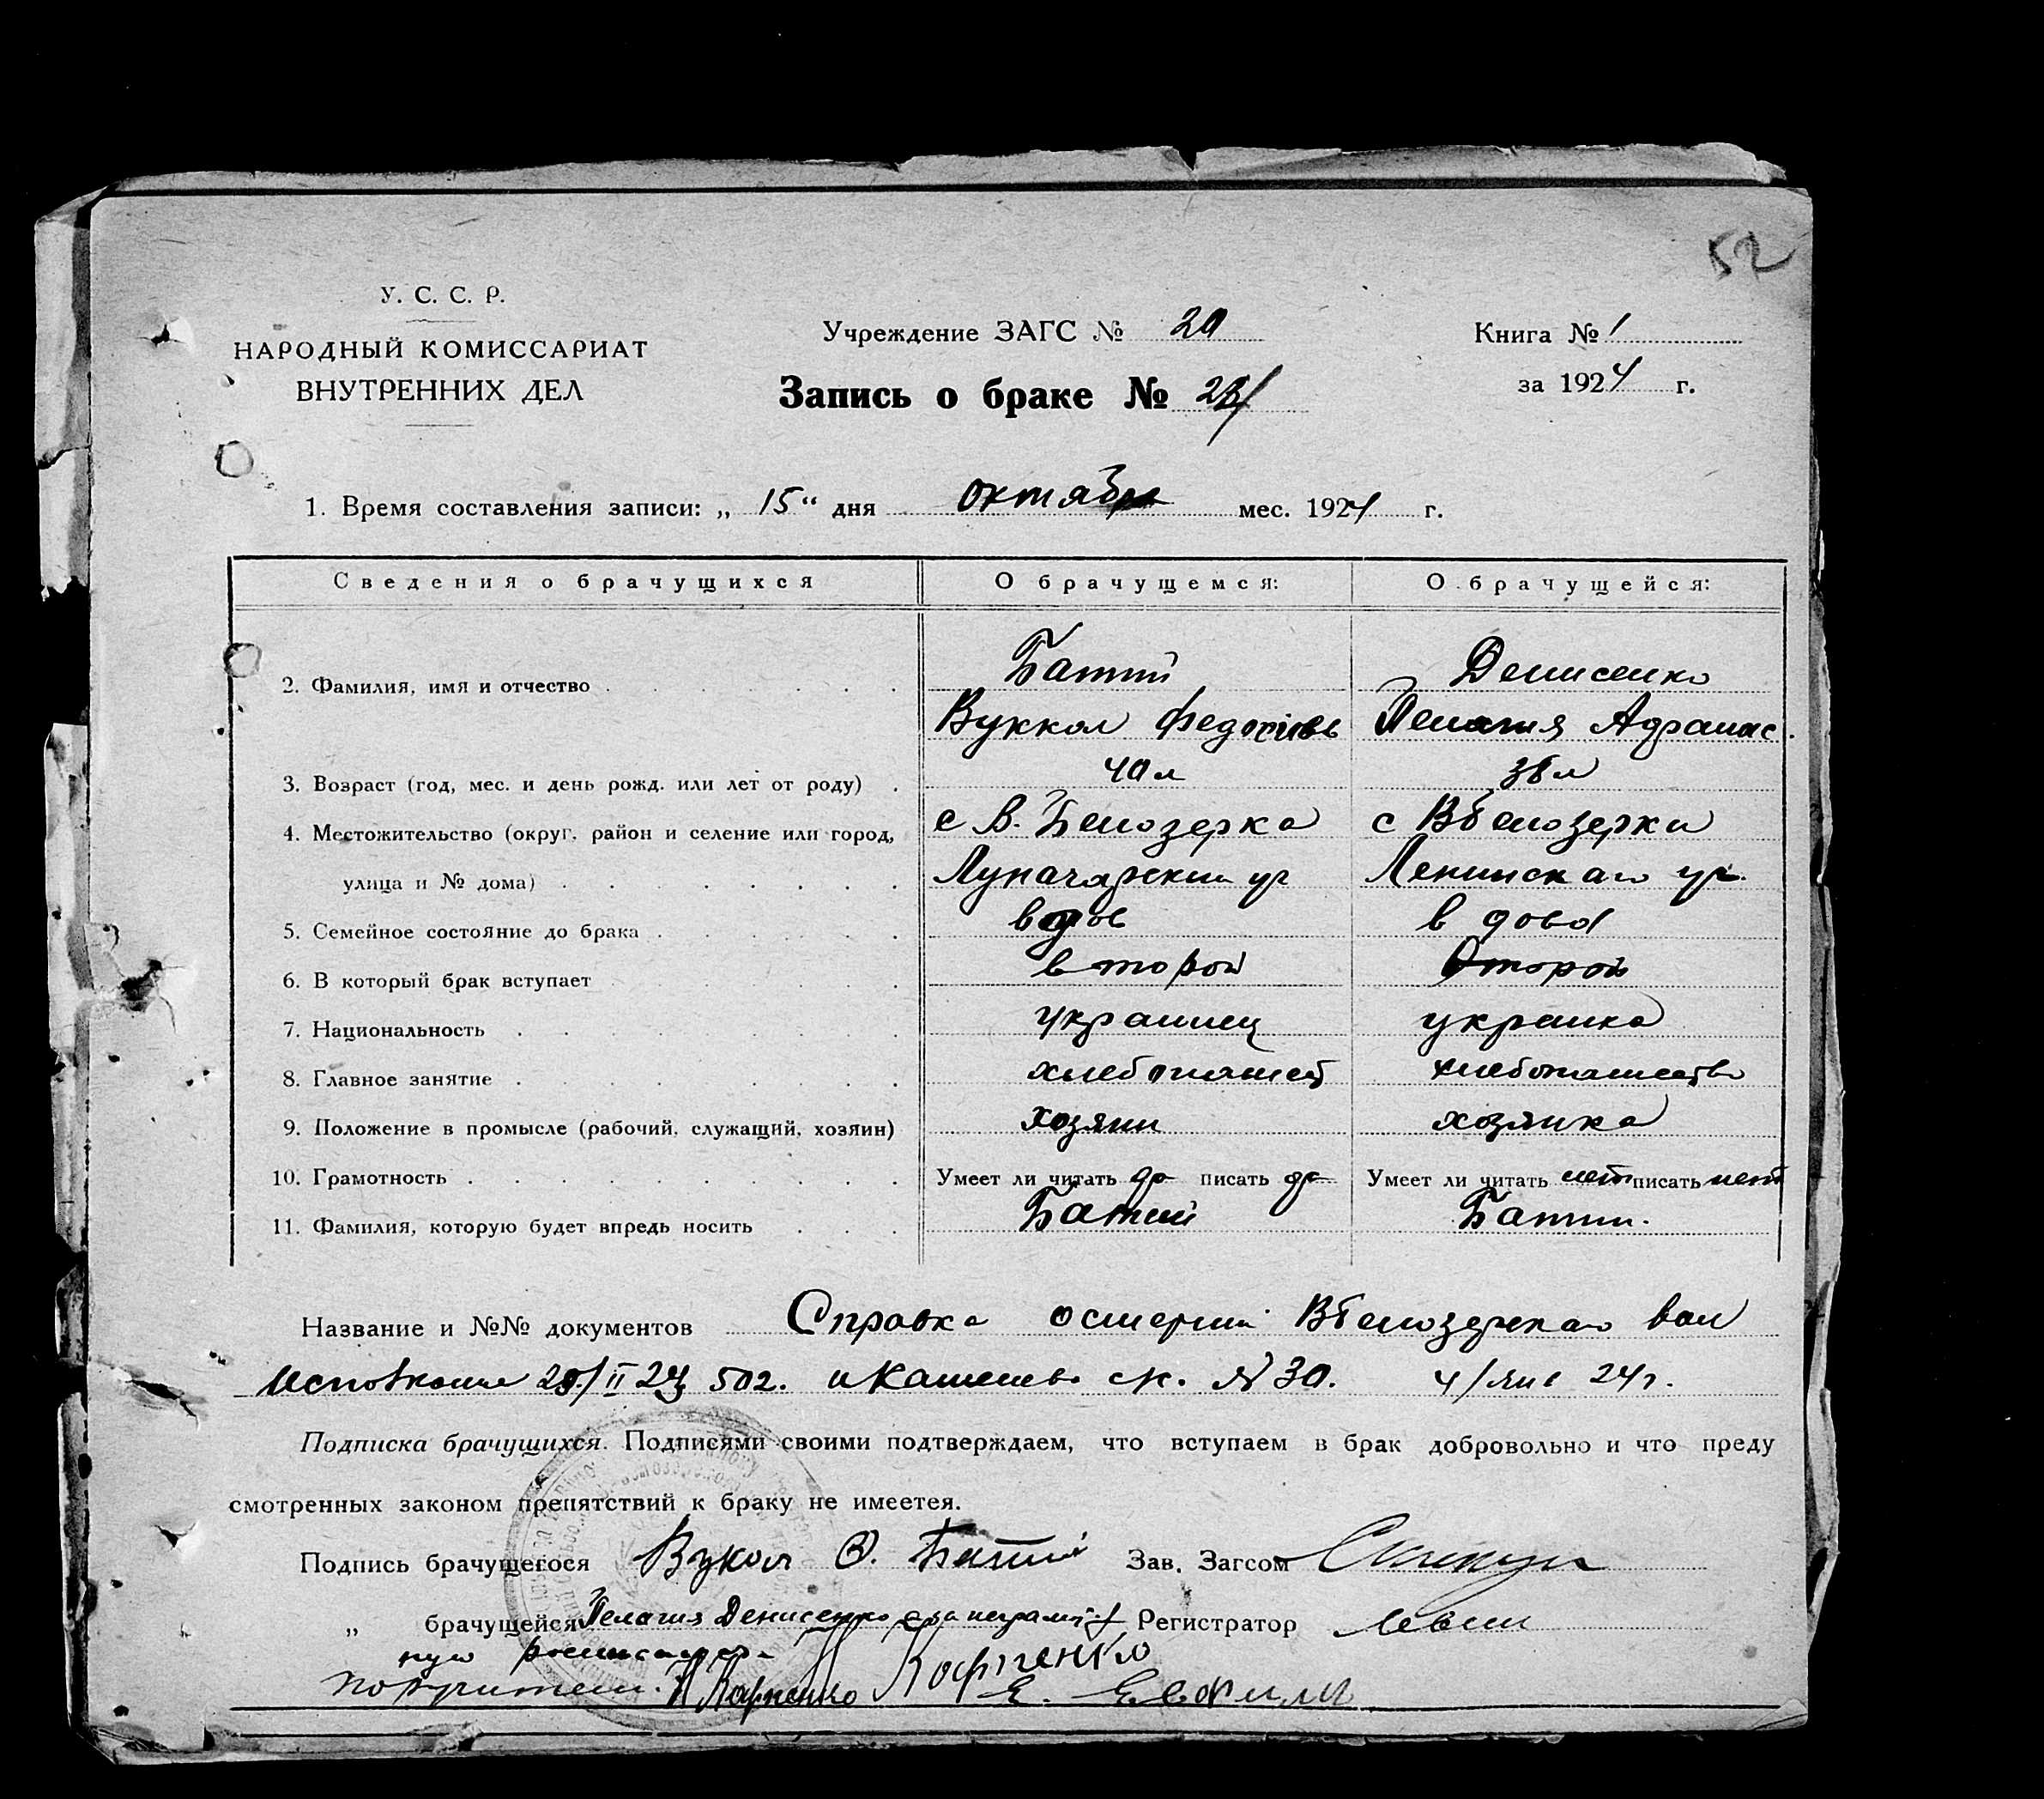 52
У. С. С. Р.
НАРОДНЫЙ КОМИССАРИАТ
ВНУТРЕННИХ ДЕЛ
Учреждение ЗАГС № 20
Запись о браке №
Книга № 1
за 1924 г.
1. Время составления записи: „ 15 “ дня октября мес. 1924 г.
Сведения о брачущихся О брачущемся: О брачущейся:
2. Фамилия, имя и отчество Батий Денисенко
Вуккол Пелагия
3. Возраст (год, мес. и день рожд. или лет от роду) 40 л 38 л
4. Местожительство (округ, район и селение или город, с В. Белозерка с ВБелозерки
улица и № дома) Луначарский Ленинская ул.
5. Семейное состояние до брака вдов вдова
6. В который брак вступает второй второй
7. Национальность украинец украинка
8. Главное занятие хлебопашест хлебопашество
9. Положение в промысле (рабочий, служащий, хозяин) хозяин хозяйка
10. Грамотность Умеет ли читать да писать да Умеет ли читать нет писать нет
11. Фамилия, которую будет впредь носить Батий Батий.
Название и №№ документов Справка ВБелозерская вол
502. № 30. 24 г.
Подписка брачущихся. Подписями своими подтверждаем, что вступаем в брак добровольно и что преду
смотренных законом препятствий к браку не имеетея.
Подпись брачущегося Вукол Ф. Батий Зав. Загсом
„ брачущейся Пелагия Денисенко а за неграмот Регистратор Левин
ную
Карпенко Карпенко